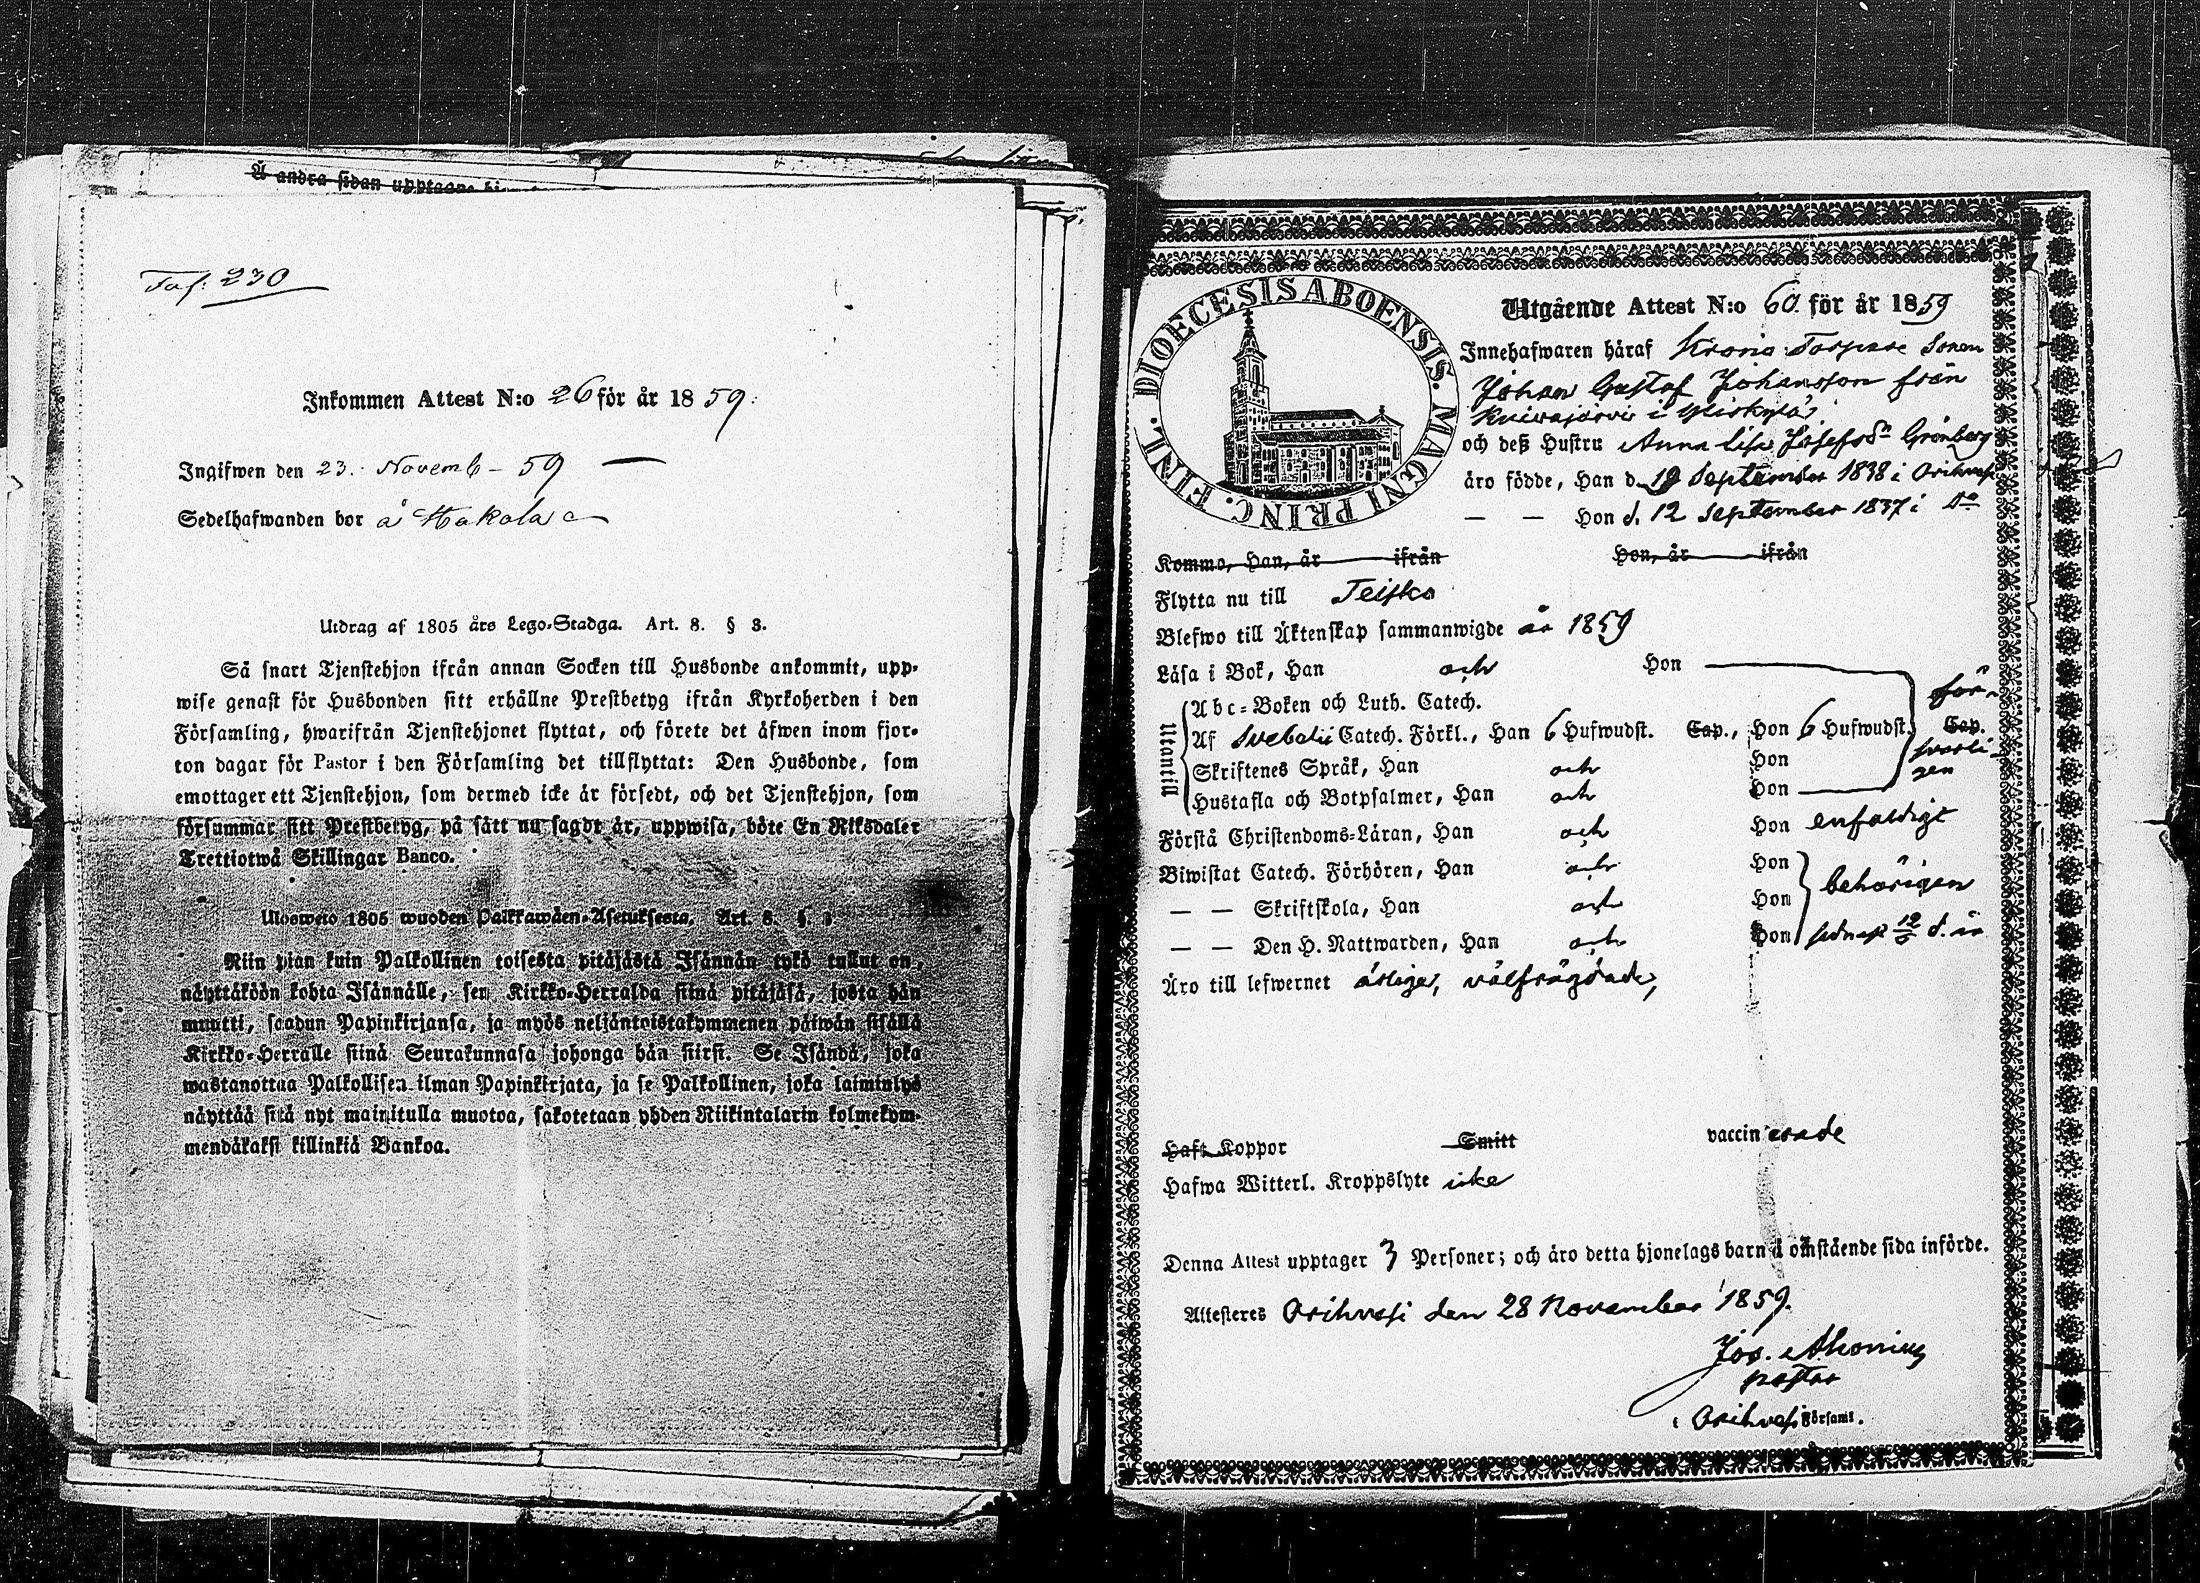 Å andra sidan upptagne
Taf: 230
Inkommen Attest N:o 26 för år 1859.
Ingifwen den 23. Novemb - 59
Sedelhafwanden bor å Hakala
Utdrag af 1805 års Lego-Stadga. Art. 8. § 8.
Så snart Tjenstehjon ifrån annan Socken till Husbonde ankommit, upp-
wise genast för Husbonden sitt erhållne Prestbetyg ifrån Kyrkoherden i den
Församling, hwarifrån Tjenstehjonet flyttat, och förete det äfwen inom fjor-
ton dagar för Pastor i den Församling det tillflyttat: Den Husbonde, som
emottager ett Tjenstehjon, som dermed icke är försedt, och det Tjenstehjon, som
försummar sitt Prestbetyg, på sätt nu sagdt är, uppwisa, böte En Riksdaler
Trettiotwå Skillingar Banco.
Ulosweto 1805 wuoden Palkkawäen-Asetuksesta. Art. 8. §
Niin pian kuin Palkollinen toisesta pitäjästä Isännän tykö tullut on,
näyttäköön kohta Isännälle, sen Kirkko-Herralda siinä pitäjäsä, josta hän
muutti, saadun Papinkirjansa, ja myös neljäntoistakymmenen päiwän sisällä
Kirkko-Herralle siinä Seurakunnasa johonga hän siirsi. Se Isändä, joka
wastanottaa Palkollisen ilman Papinkirjata, ja se Palkollinen, joka laiminlyö
näyttää sitä nyt mainitulla muotoa, sakotetaan yhden Riikintalarin kolmekym-
mendäkaksi killinkiä Bankoa.
DIOECESIS ABOENSIS. MAGNI PRINC. FINL.
Utgående Attest N:o 60. för år 1859
Innehafwaren häraf Krono Torpare Sonen
Johan Gustaf Johansson från
i
och deß Hustru Anna Lisa Josefsdr Grönberg
äro födde, Han d. 19 September 1838 i Orihvesi
— — Hon d. 12 September 1837 i Do
Kommo, Han, år ifrån Hon, år ifrån
Flytta nu till Teisko
Blefwo till Äktenskap sammanwigde år 1859
Läsa i Bok, Han och Hon
för-
Utantill
Abc-Boken och Luth. Catech.
Af Svebelii Catech. Förkl., Han 6 Hufwudst. Cap., Hon 6 Hufwudst. Cap.
svarli
Skriftenes Språk, Han och Hon
gen
Hustafla och Botpsalmer, Han och Hon
Förstå Christendoms-Läran, Han och Hon enfaldigt
Biwistat Catech. Förhören, Han och Hon
behörigen
— — Skriftskola, Han och Hon
— — Den H. Nattwarden, Han och Hon
Äro till lefwernet ärliga, välfrägdade,
Haft Koppor Smitt vaccinerade
Hafwa Witterl. Kroppslyte icke
Denna Attest upptager 3 Personer; och äro detta hjonelags barn å omstående sida införde.
Attesteres Orihvesi den 28 November 1859.
Jos.
pastor
i Orihvesi Församl.